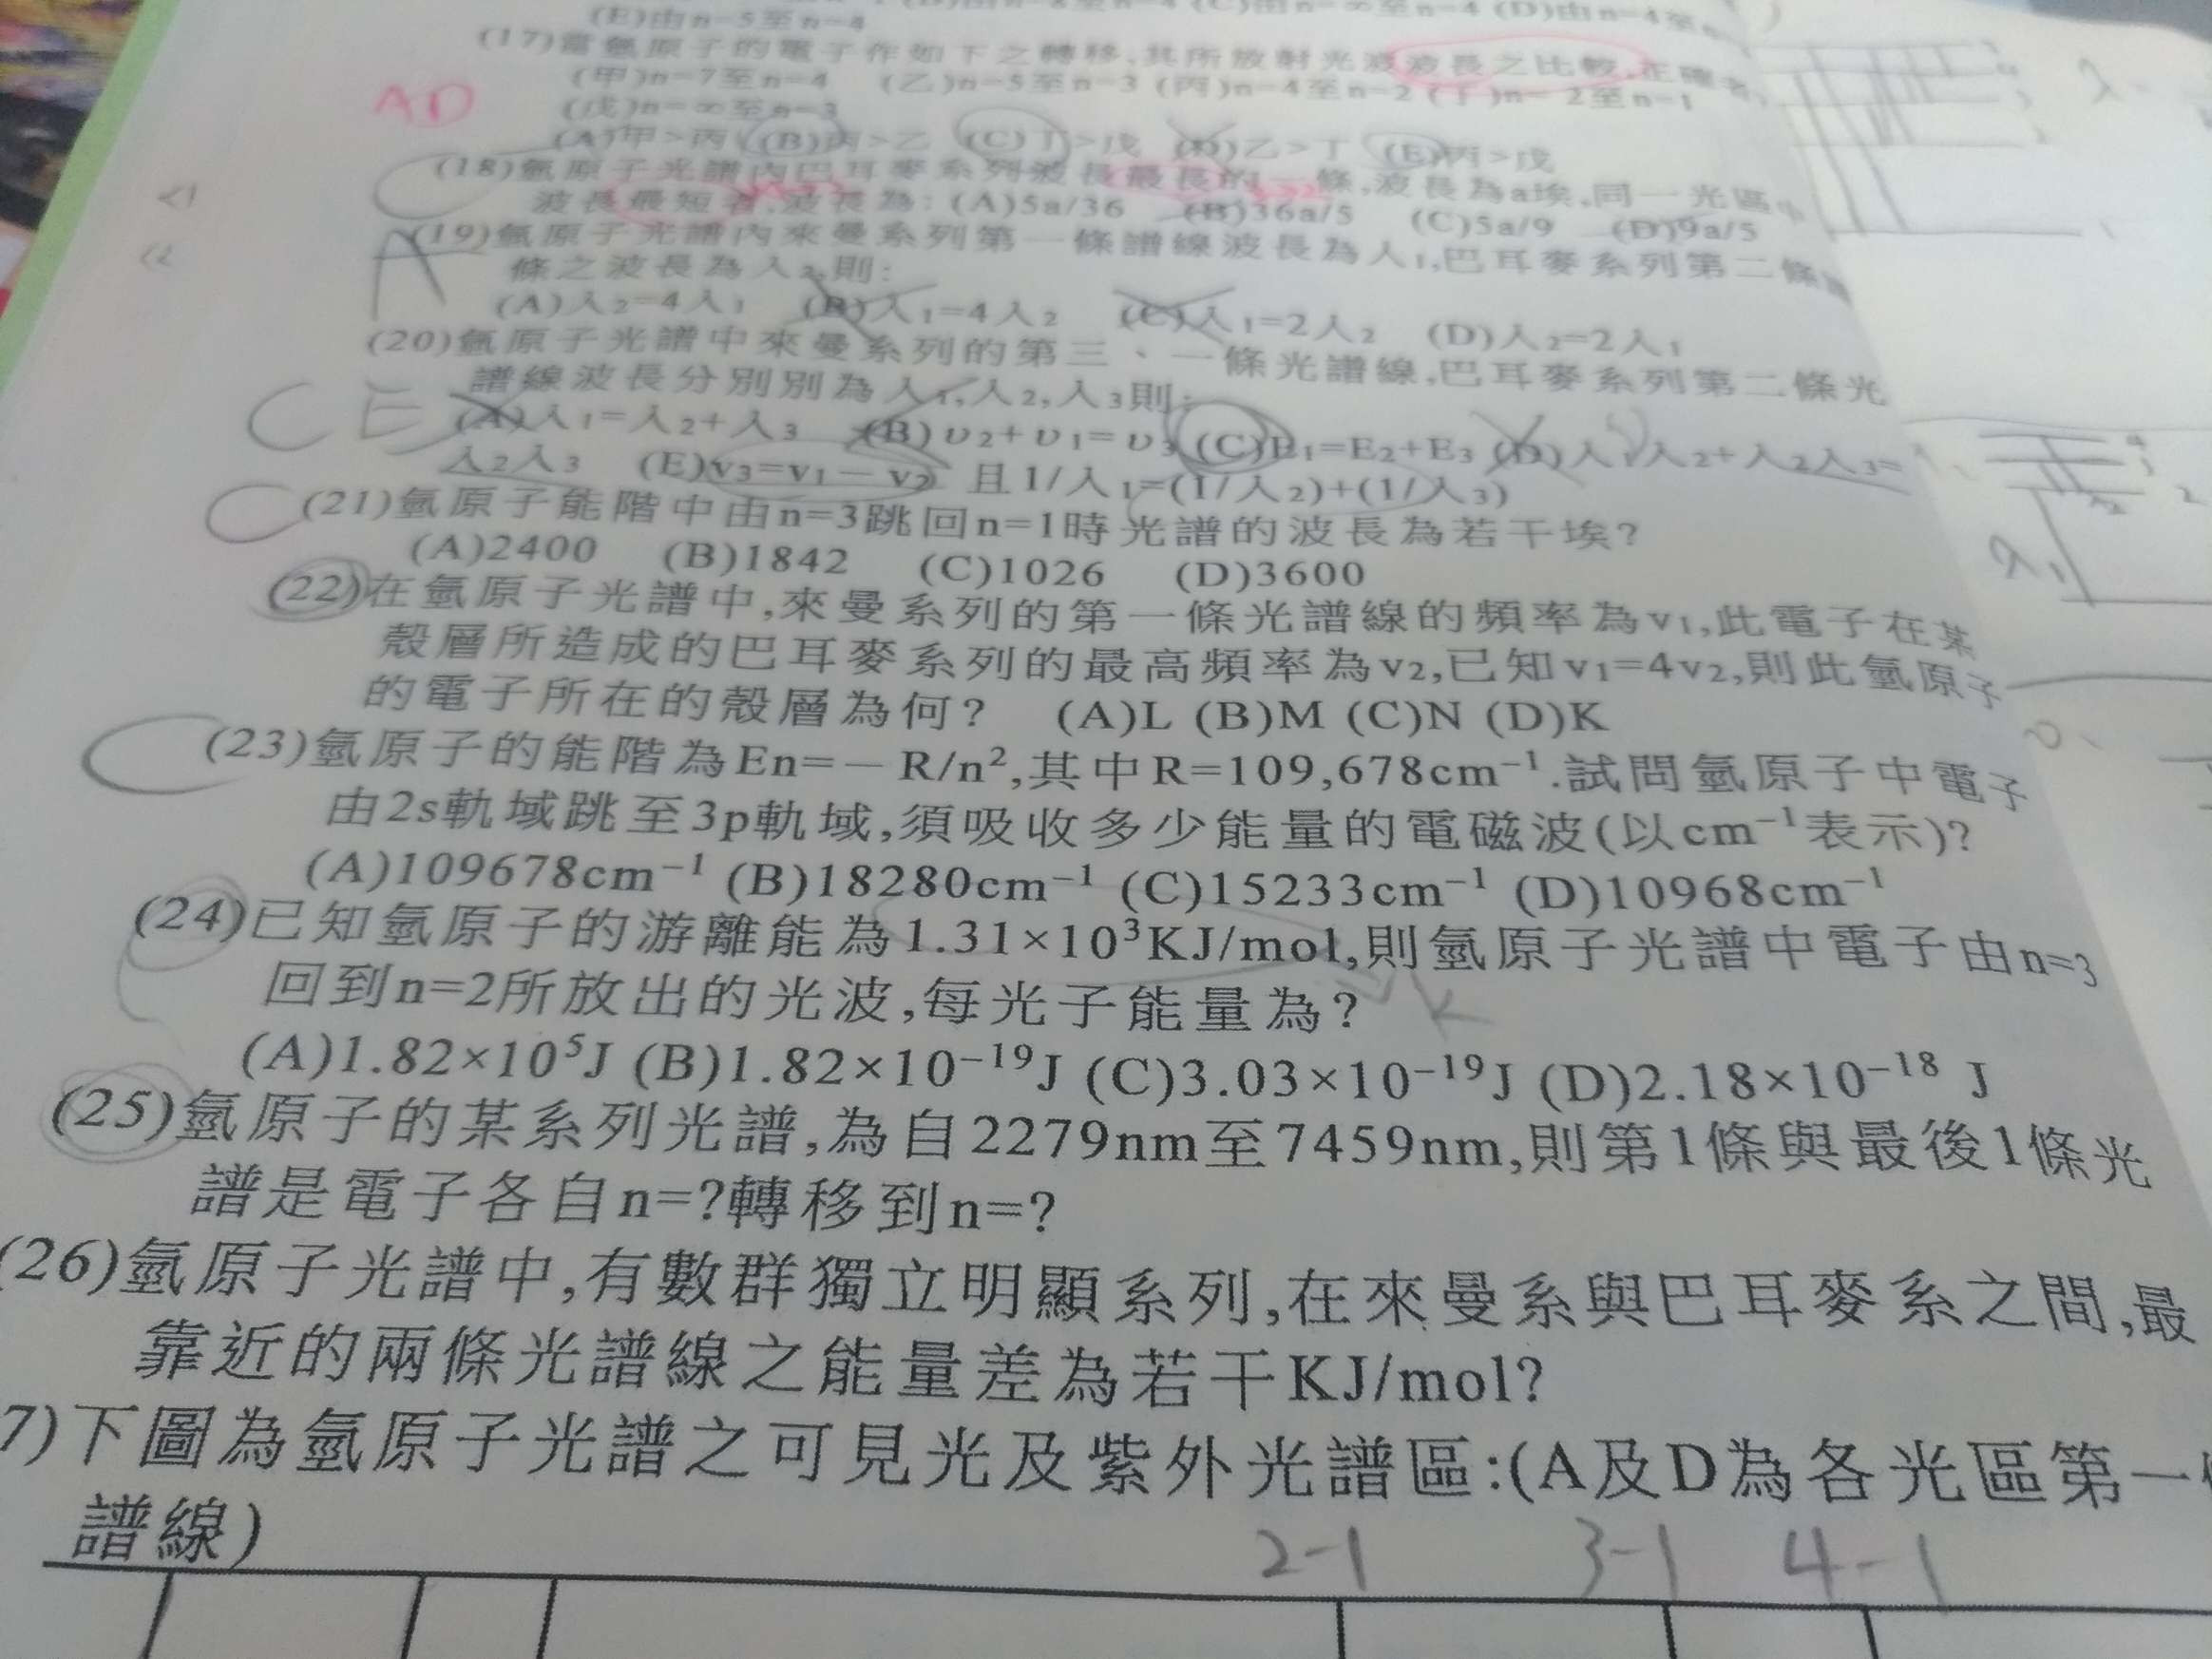 (E)由n=5至n=4
(17)當氫原子的電子作如下之轉移,其所放射光波波長之比較,正確
(甲)n=7至n=4 (乙)n=5至n=3 (丙)n=4至n=2 (丁)n=2至n=1
(戊)n=∞至n=3
AD
(A)甲>丙 (B)丙>乙 (C)丁>戊 (D)乙>丁 (E)丙>戊
(18)氫原子光譜內巴耳麥系列波長最長的一條,波長為a埃,同一光區中
波長最短者,波長為:(A)5a/36 (B)36a/5 (C)5a/9 (D)9a/5
(19)氫原子光譜內來曼系列第一條譜線波長為入1,巴耳麥系列第二條
條之波長為入2,則:
A
(A)入2=4入1 (B)入1=4入2 (C)入1=2入2 (D)入2=2入1
(20)氫原子光譜中來曼系列的第三、一條光譜線,巴耳麥系列第二條光
譜線波長分別別為入1,入2,入3則:
CE
(A)入1=入2+入3 (B)υ2+υ1=υ3 (C)E1=E2+E3 (D)入1入2+入2入3=
入2入3 (E)v3=v1-v2 且1/入1=(1/入2)+(1/入3)
C
(21)氫原子能階中由n=3跳回n=1時光譜的波長為若干埃?
(A)2400 (B)1842 (C)1026 (D)3600
(22)在氫原子光譜中,來曼系列的第一條光譜線的頻率為v1,此電子在某
殼層所造成的巴耳麥系列的最高頻率為v2,已知v1=4v2,則此氫原子
的電子所在的殼層為何? (A)L (B)M (C)N (D)K
C
(23)氫原子的能階為En=-R/n²,其中R=109,678cm⁻¹.試問氫原子中電子
由2s軌域跳至3p軌域,須吸收多少能量的電磁波(以cm⁻¹表示)?
(A)109678cm⁻¹ (B)18280cm⁻¹ (C)15233cm⁻¹ (D)10968cm⁻¹
(24)已知氫原子的游離能為1.31×10³KJ/mol,則氫原子光譜中電子由n=3
回到n=2所放出的光波,每光子能量為?
(A)1.82×10⁵J (B)1.82×10⁻¹⁹J (C)3.03×10⁻¹⁹J (D)2.18×10⁻¹⁸ J
(25)氫原子的某系列光譜,為自2279nm至7459nm,則第1條與最後1條光
譜是電子各自n=?轉移到n=?
(26)氫原子光譜中,有數群獨立明顯系列,在來曼系與巴耳麥系之間,最
靠近的兩條光譜線之能量差為若干KJ/mol?
7)下圖為氫原子光譜之可見光及紫外光譜區:(A及D為各光區第一
譜線)
2-1 3-1 4-1